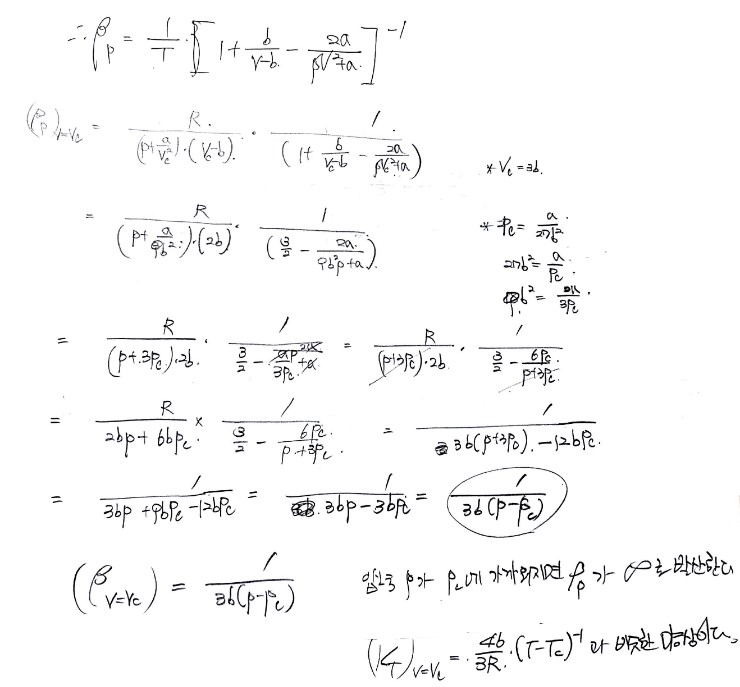 ∴ β_p = 1/T · [1 + b/(V-b) - 2a/(pV²+a)]^-1
(β_p)_{V=Vc} = R/((p+a/Vc²)·(Vc-b)) · 1/(1 + b/(Vc-b) - 2a/(pVc²+a))
* Vc = 3b.
= R/((p+a/9b²)·(2b)) · 1/(3/2 - 2a/(9b²p+a))
* Pc = a/27b²
27b² = a/Pc
9b² = a/3Pc
= R/((p+3Pc)·2b) · 1/(3/2 - ) = R/((p+3Pc)·2b) · 1/(3/2 - 6Pc/(p+3Pc))
= R/(2bp + 6bPc) × 1/(3/2 - 6Pc/(p+3Pc)) = 1/(3b(p+3Pc) - 12bPc)
= 1/(3bp + 9bPc - 12bPc) = 1/(3bp - 3bPc) = 1/(3b(p-Pc))
(β_{V=Vc}) = 1/(3b(p-Pc))
압력 p가 Pc에 가까워지면 β_p가 ∞로 발산한다
(K)_{V=Vc} = 4b/3R · (T-Tc)^-1 과 비슷한 대상이다.